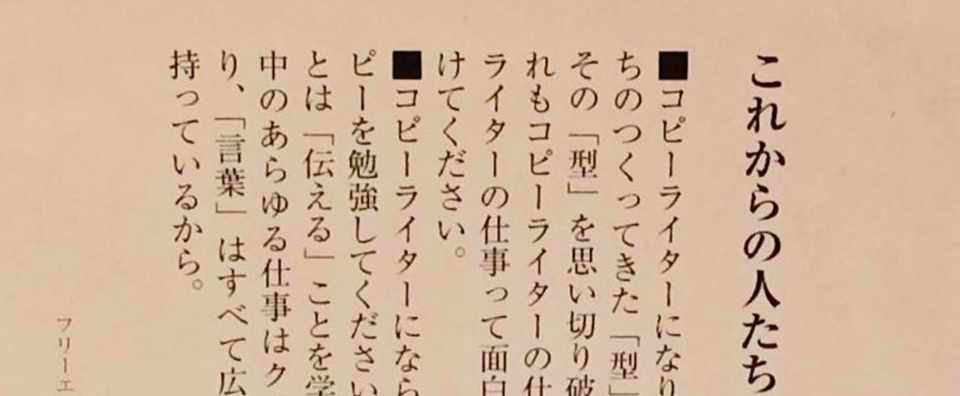 これからの人たち
■コピーライターになり
ちのつくってきた「型」
その「型」を思い切り破
れもコピーライターの仕
ライターの仕事って面白
けてください。
■コピーライターになら
ピーを勉強してください
とは「伝える」ことを学
中のあらゆる仕事はク
り、「言葉」はすべて広
持っているから。
フリーエ